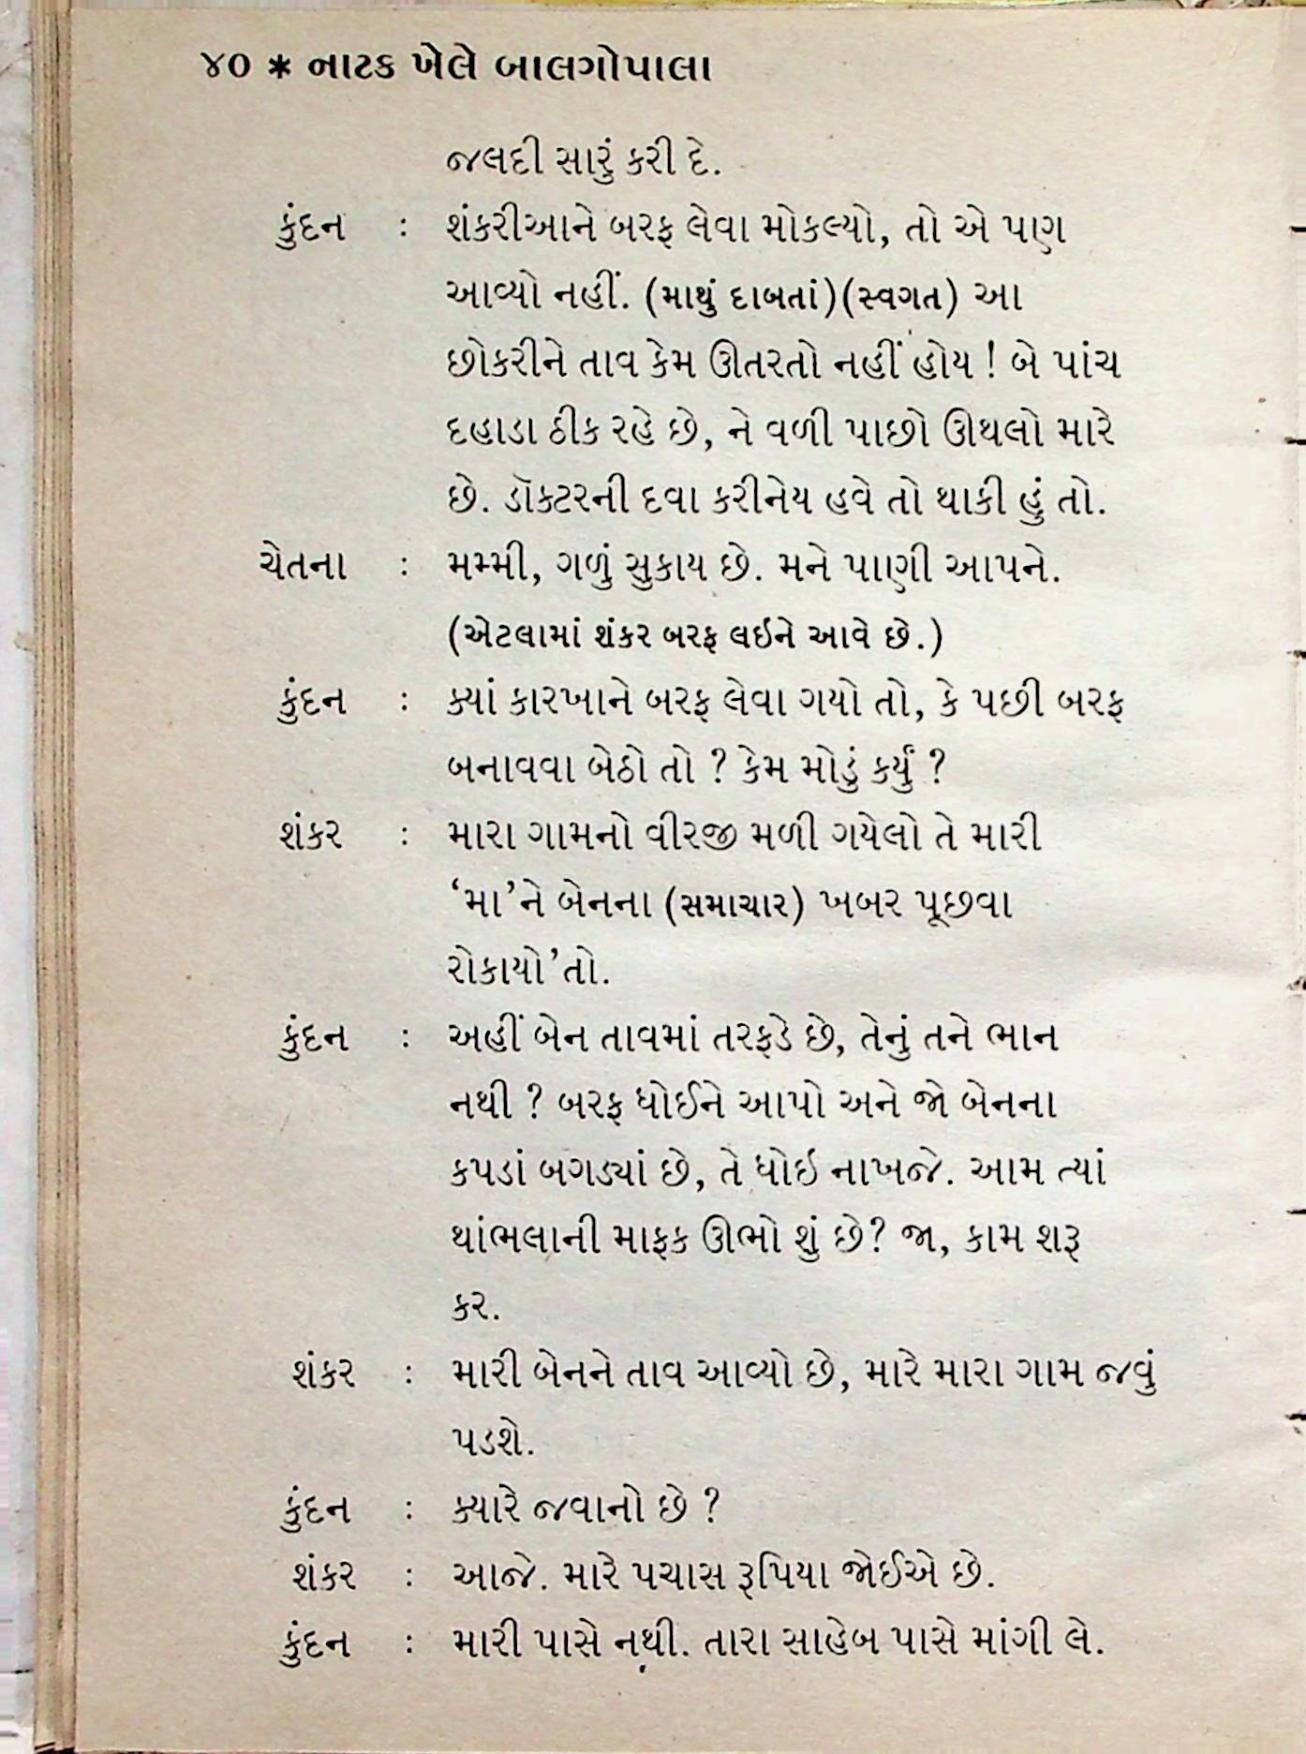 ૪૦ * નાટક ખેલે બાલગોપાલા
જલદી સારું કરી દે.
કુંદન : શંકરીઆને બરફ લેવા મોકલ્યો, તો એ પણ
આવ્યો નહીં. (માથું દાબતાં)(સ્વગત) આ
છોકરીને તાવ કેમ ઊતરતો નહીં હોય ! બે પાંચ
દહાડા ઠીક રહે છે, ને વળી પાછો ઊથલો મારે
છે. ડૉક્ટરની દવા કરીનેય હવે તો થાકી હું તો.
ચેતના : મમ્મી, ગળું સુકાય છે. મને પાણી આપને.
(એટલામાં શંકર બરફ લઇને આવે છે.)
કુંદન : ક્યાં કારખાને બરફ લેવા ગયો તો, કે પછી બરફ
બનાવવા બેઠો તો ? કેમ મોડું કર્યું ?
શંકર : મારા ગામનો વીરજી મળી ગયેલો તે મારી
‘મા’ને બેનના (સમાચાર) ખબર પૂછવા
રોકાયો’તો.
કુંદન : અહીં બેન તાવમાં તરફડે છે, તેનું તને ભાન
નથી ? બરફ ધોઈને આપો અને જો બેનના
કપડાં બગડ્યાં છે, તે ધોઇ નાખજે. આમ ત્યાં
થાંભલાની માફક ઊભો શું છે? જા, કામ શરૂ
કર.
શંકર : મારી બેનને તાવ આવ્યો છે, મારે મારા ગામ જવું
પડશે.
કુંદન : ક્યારે જવાનો છે ?
શંકર : આજે. મારે પચાસ રૂપિયા જોઈએ છે.
કુંદન : મારી પાસે નથી. તારા સાહેબ પાસે માંગી લે.